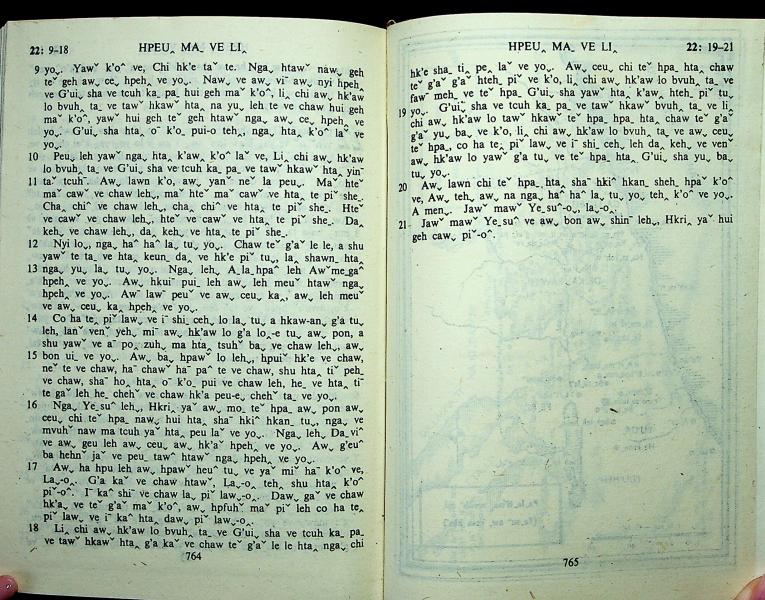 22: 9-18 HPEUꞈ MA_ VE LIꞈ
9 yo ̬. Yawˇ k'oꞈ ve, Chi hk'e ta ̬ te. Nga ̬ htawˇ naw ̬ geh
teˇ geh aw ̬ ce ̬ hpeh ̬ ve yo ̬. Naw ̬ ve aw ̬ viˉ aw ̬ nyi hpehꞈ
ve G'ui ̬ sha ve tcuh ka_ pa_ hui geh maˇ k'oꞈ, li ̬ chi aw ̬ hk'aw
lo bvuh ̬ ta ̬ ve tawˇ hkawˇ htaꞈ na yu ̬ leh te ve chaw hui geh
maˇ k'oꞈ, yawˇ hui geh teˇ geh htawˇ nga ̬ aw ̬ ce ̬ hpeh ̬ ve
yo ̬. G'ui ̬ sha htaꞈ oˉ k'o ̬ pui-o teh ̬, nga ̬ htaꞈ k'oꞈ laˇ ve
yo ̬.
10 Peu ̬ leh yawˇ nga ̬ htaꞈ k'aw ̬ k'oꞈ laˇ ve, Li ̬ chi aw ̬ hk'aw
lo bvuh ̬ ta ̬ ve G'ui ̬ sha ve tcuh ka_ pa_ ve tawˇ hkawˇ htaꞈ yinˉ
11 taˇ tcuhˉ. Aw ̬ lawn k'o, aw ̬ yan ̬ neˇ la peu ̬. Maˇ hteˇ
maˇ caw ̬ ve chaw leh ̬, maˇ hteˇ maˇ caw ̬ ve htaꞈ te piˇ she_.
Cha ̬ chiꞈ ve chaw leh ̬, cha ̬ chiꞈ ve htaꞈ te piˇ she_. Hteˇ
ve cawˇ ve chaw leh ̬, hteˇ ve cawˇ ve htaꞈ te piˇ she_. Daꞈ
keh ̬ ve chaw leh ̬, daꞈ keh ̬ ve htaꞈ te piˇ she_.
12 Nyi lo ̬, nga ̬ haꞈ haꞈ la ̬ tu ̬ yo ̬. Chaw teˇ g'aˇ le le, a shu
yawˇ te ta ̬ ve htaꞈ keun_ daꞈ ve hk'e piˇ tu ̬, la ̬ shawn_ htaꞈ
13 nga ̬ yu ̬ la ̬ tu ̬ yo ̬. Nga ̬ leh ̬ A_la_hpaꞈ leh Awˇme_gaꞈ
hpeh ̬ ve yo ̬. Aw ̬ hkuiˉ pui ̬ leh aw ̬ leh meuˇ htawˇ nga ̬
hpeh ̬ ve yo ̬. Awˉ lawˉ peuˇ ve aw ̬ ceu ̬ kaꞈ, aw ̬ leh meuˇ
ve aw ̬ ceu ̬ kaꞈ hpeh ̬ ve yo ̬.
14 Co ha teꞈ piˇ law ̬ ve iˉ shi_ ceh ̬ lo la ̬ tu ̬ a hkaw-an ̬ g'a tu ̬
leh, lanˇ venˇ yeh ̬ miˉ aw ̬ hk'aw lo g'a loꞈ-e tu ̬ aw ̬ pon, a
shu yawˇ ve aˇ poꞈ zuh ̬ ma htaꞈ tsuhˇ ba ̬ ve chaw leh ̬, aw ̬
15 bon ui_ ve yo ̬. Aw ̬ ba ̬ hpaw lo leh ̬, hpuiˇ hk'e ve chaw,
neˇ te ve chaw, haˉ chawˇ haˉ paꞈ te ve chaw, shu htaꞈ tiˇ peh_
ve chaw, shaˇ hoꞈ htaꞈ oˉ k'o_ pui ve chaw leh, he ̬ ve htaꞈ tiˉ
te gaˇ leh he ̬ chehˇ ve chaw hk'a peu-e ̬ chehˇ ta ̬ ve yo ̬.
16 Nga ̬ Ye_suꞈ leh ̬, Hkriꞈ yaˇ aw ̬ mo_ teˇ hpaꞈ aw ̬ pon aw ̬
ceu ̬ chi teˇ hpa_ naw ̬ hui htaꞈ shaˉ hkiˉ hkan_ tu ̬, nga ̬ ve
mvuhˇ naw ma tcuh yaˇ htaꞈ peu la ̬ ve yo ̬. Nga ̬ leh ̬ Da_viꞈ
ve aw ̬ geu leh aw ̬ ceu ̬ aw ̬ hk'aˇ hpeh ̬ ve yo ̬. Aw ̬ g'euꞈ
ba hehnˇ jaˇ ve peu_ tawꞈ htawˇ nga ̬ hpeh ̬ ve yo ̬.
17 Aw ̬ ha hpu leh aw ̬ hpawˇ heuꞈ tu ̬ ve ya ̬ miˇ haˉ k'oꞈ ve,
La ̬-oꞈ. G'a kaˇ ve chaw htawˇ, La ̬-oꞈ teh ̬ shu htaꞈ k'oꞈ
piˇ-oꞈ. Iˉ kaꞈ shiˇ ve chaw la ̬ piˇ law ̬-oꞈ. Daw ̬ gaˇ ve chaw
hk'a ̬ ve teˇ g'aˇ maˇ k'oꞈ, aw ̬ hpfuhˇ maˇ pi leh co ha teꞈ
piˇ law ̬ ve iˉ kaꞈ htaꞈ daw ̬ piˇ law ̬-oꞈ.
18 Li ̬ chi aw ̬ hk'aw lo bvuh ̬ ta ̬ ve G'ui ̬ sha ve tcuh ka_ pa_
ve tawˇ hkawˇ htaꞈ g'a kaˇ ve chaw teˇ g'aˇ le le htaꞈ nga ̬ chi
764
HPEUꞈ MA_ VE LIꞈ 22: 19-21
hk'e sha_ ti ̬ pe ̬ laˇ ve yo ̬. Aw ̬ ceu ̬ chi teˇ hpa_ htaꞈ chaw
teˇ g'aˇ g'aˇ hteh_ piˇ ve k'o, li ̬ chi aw ̬ hk'aw lo bvuh ̬ ta ̬ ve
faw ̬ meh ̬ ve teˇ hpa_ G'ui ̬ sha yawˇ htaꞈ k'aw ̬ hteh_ piˇ tu ̬
19 yo ̬. G'ui ̬ sha ve tcuh ka_ pa_ ve tawˇ hkawˇ bvuh ̬ ta ̬ ve li ̬
chi aw ̬ hk'aw lo tawˇ hkawˇ teˇ hpa_ hpa_ htaꞈ chaw teˇ g'aˇ
g'aˇ yu ̬ ba ̬ ve k'o, li ̬ chi aw ̬ hk'aw lo bvuh ̬ ta ̬ ve aw ̬ ceu ̬
teˇ hpa_, co ha teꞈ piˇ law ̬ ve iˉ shi_ ceh ̬ leh daꞈ keh ̬ ve venˇ
aw ̬ hk'aw lo yawˇ g'a tu ̬ ve teˇ hpa_ htaꞈ G'ui ̬ sha yu ̬ ba ̬
tu ̬ yo ̬.
20 Aw ̬ lawn chi teˇ hpa_ htaꞈ shaˉ hkiˉ hkan_ sheh_ hpaˇ k'oꞈ
ve, Aw ̬ teh ̬ aw ̬ na nga ̬ haꞈ haꞈ la ̬ tu ̬ yo ̬ teh ̬ k'oꞈ ve yo ̬.
A men ̬. Jawˇ mawˇ Ye_suꞈ-o ̬, la ̬-oꞈ.
21 Jawˇ mawˇ Ye_suꞈ ve aw ̬ bon aw ̬ shinˉ leh ̬, Hkriꞈ yaˇ hui
geh caw ̬ piˇ-oꞈ.
765